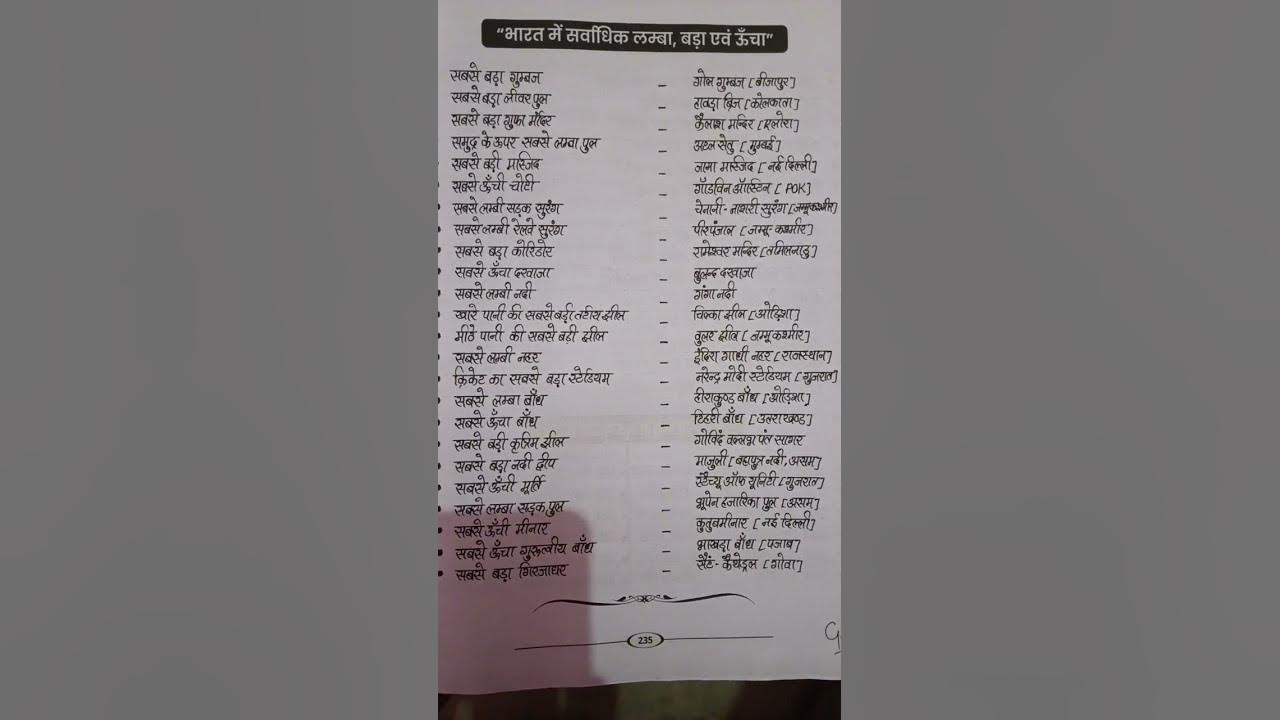 “भारत में सर्वाधिक लम्बा, बड़ा एवं ऊँचा”
सबसे बड़ा गुम्बज – गोल गुम्बज [बीजापुर]
सबसे बड़ा लीवर पुल – हावड़ा ब्रिज [कोलकाता]
सबसे बड़ा गुफा मंदिर – कैलाश मन्दिर [एलोरा]
समुद्र के ऊपर सबसे लम्बा पुल – अटल सेतु [मुम्बई]
सबसे बड़ी मस्जिद – जामा मस्जिद [नई दिल्ली]
सबसे ऊँची चोटी – गॉडविन ऑस्टिन [POK]
सबसे लम्बी सड़क सुरंग – चेनानी-नाशरी सुरंग [जम्मूकश्मीर]
सबसे लम्बी रेलवे सुरंग – पीरपंजाल [जम्मू-कश्मीर]
सबसे बड़ा कोरिडोर – रामेश्वर मन्दिर [तमिलनाडु]
सबसे ऊँचा दरवाजा – बुलन्द दरवाजा
सबसे लम्बी नदी – गंगा नदी
खारे पानी की सबसे बड़ी तटीय झील – चिल्का झील [ओड़िशा]
मीठे पानी की सबसे बड़ी झील – वुलर झील [जम्मू कश्मीर]
सबसे लम्बी नहर – इंदिरा गाधी नहर [राजस्थान]
क्रिकेट का सबसे बड़ा स्टेडियम – नरेन्द्र मोदी स्टेडियम [गुजरात]
सबसे लम्बा बाँध – हीराकुण्ड बाँध [ओड़िशा]
सबसे ऊँचा बाँध – टिहरी बाँध [उत्तराखण्ड]
सबसे बड़ी कृत्रिम झील – गोविंद वल्लभ पंत सागर
सबसे बड़ा नदी द्वीप – माजुली [ब्रह्मपुत्र नदी, असम]
सबसे ऊँची मूर्ति – स्टैच्यू ऑफ यूनिटी [गुजरात]
सबसे लम्बा सड़क पुल – भूपेन हजारिका पुल [असम]
सबसे ऊँची मीनार – कुतुबमीनार [नई दिल्ली]
सबसे ऊँचा गुरुत्वीय बाँध – भाखड़ा बाँध [पंजाब]
सबसे बड़ा गिरजाघर – सैंट-कैथेड्रल [गोवा]
235